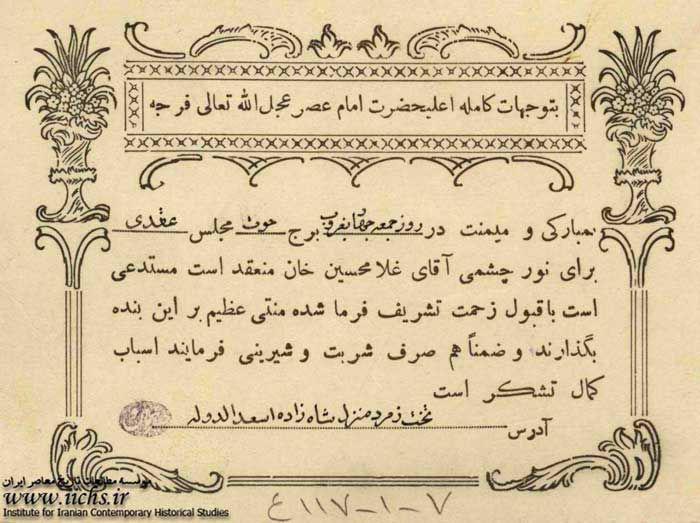 بتوجهات کامله اعلیحضرت امام عصر عجل الله تعالی فرجه
بمبارکی و میمنت در روز جمعه برج حوت مجلس عقدی
برای نور چشمی آقای غلامحسین خان منعقد است مستدعی
است با قبول زحمت تشریف فرما شده منتی عظیم بر این بنده
بگذارند و ضمناً هم صرف شربت و شیرینی فرمایند اسباب
کمال تشکر است
آدرس تخت زمرد منزل شاه زاده اسعد الدوله
موسسه مطالعات تاریخ معاصر ایران
www.iichs.ir
Institute for Iranian Contemporary Historical Studies
۷-۱-۱۱۷ع